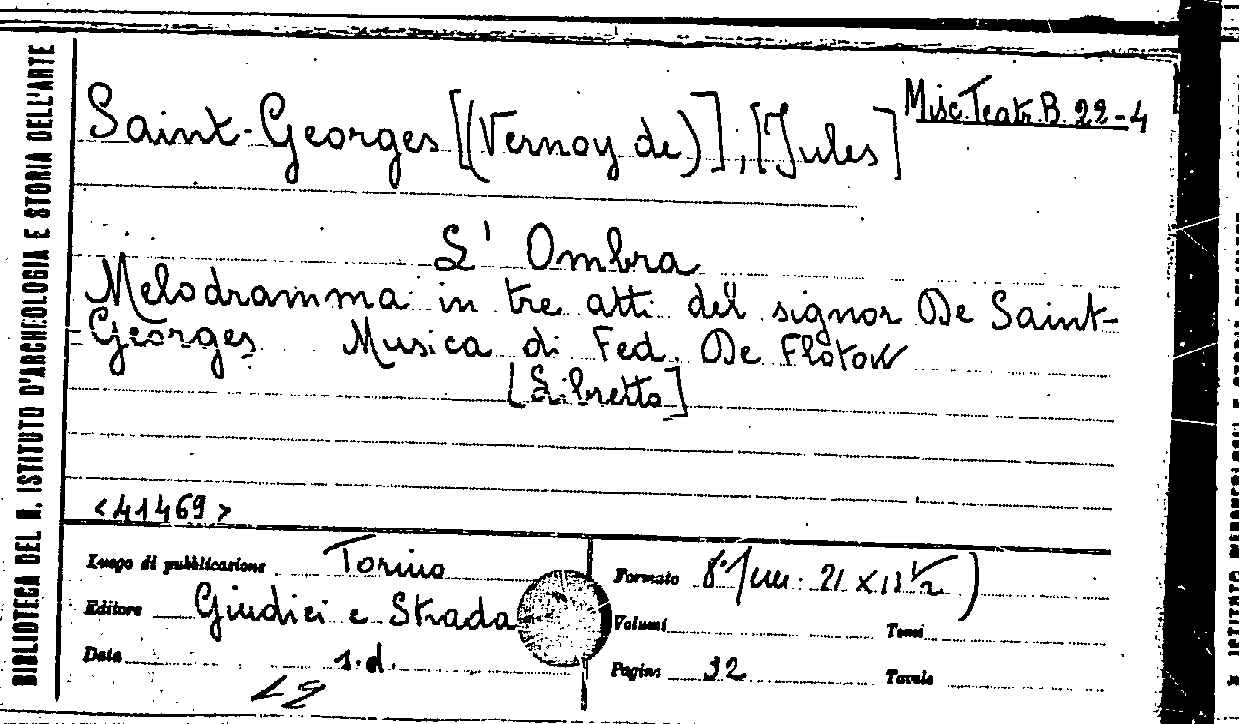 BIBLIOTECA DEL R. ISTITUTO D'ARCHEOLOGIA E STORIA DELL'ARTE
Misc. Teatr. B. 22-4
Saint-Georges [(Vernoy de)], [Jules]
L'Ombra
Melodramma in tre atti del signor De Saint-
Georges. Musica di Fed. De Flotow
[Libretto]
<41469>
Luogo di pubblicazione Torino
Editore Giudici e Strada
Data s.d.
Formato 8° (cm. 21 x 13 1/2)
Volumi Tomi
Pagine 32 Tavole